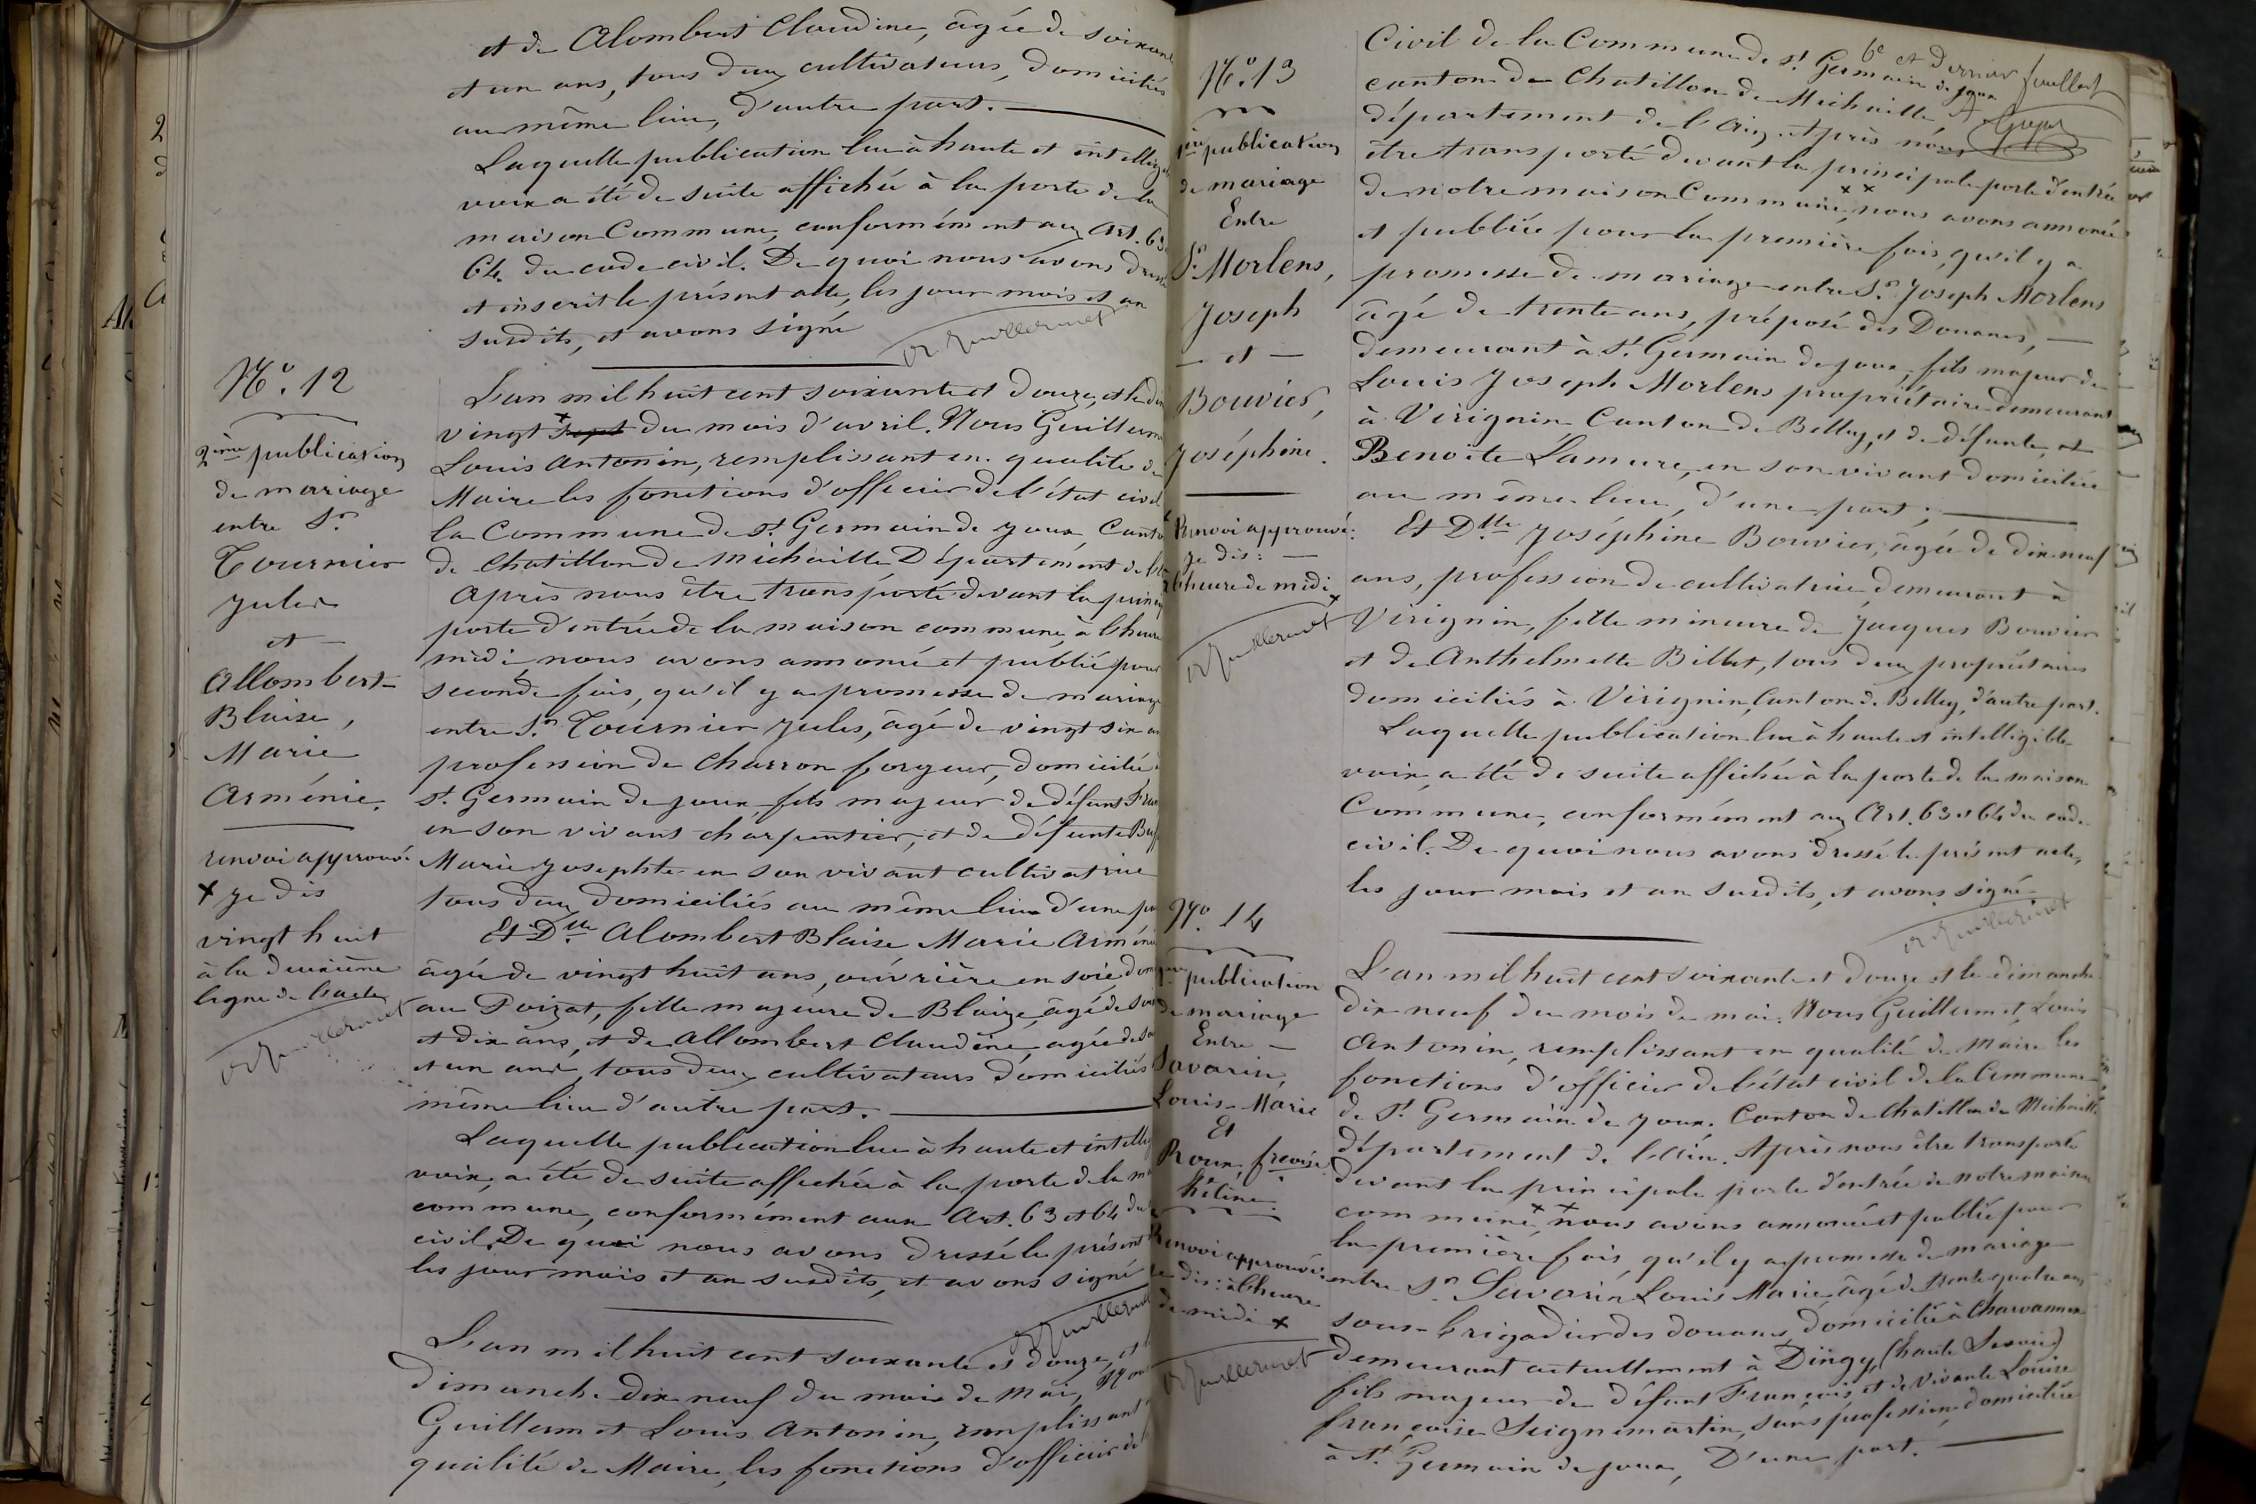 et de Alombert Claudine, âgée de soixante
et un ans, tous deux cultivateurs, domiciliés
au même lieu, d'autre part.
Laquelle publication lue à haute et intellig
voix a été de suite affichée à la porte de la
maison Commune, conformément aux Art. 63
64. du code civil. De quoi nous avons dressé
et inscrit le présent acte, les jour mois et an
susdits, et avons signé
A Guillermet
N° 12
2ème publication
de mariage
entre Sr
Tournier
Jules
et
Allombert
Blaise,
Marie
Arménie.
renvoi approuvé
x je dis
vingt huit
à la deuxième
ligne de l'acte
A Guillermet
L'an mil huit cent soixante et douze, et le dim
vingt x sept du mois d'avril. Nous Guillerm
Louis Antonin, remplissant en qualité de
Maire les fonctions d'officier de l'état civil
la Commune de St Germain de Joux, Canton
de Chatillon de Michaille Département de l'
Après nous être transporté devant la princip
porte d'entrée de la maison commune, à l'heure
midi nous avons annoncé et publié pour
seconde fois, qu'il y a promesse de mariage
entre Sr Tournier Jules, âgé de vingt six an
profession de Charron forgeur, domicilié
St Germain de Joux, fils majeur de défunt Fran
en son vivant charpentier, et de défunte Buff
Marie Josephte en son vivant cultivatrice
tous deux domiciliés au même lieu d'une pa
Et Dlle Alombert Blaise Marie Arménie
âgée de vingt huit ans, ouvrière en soie, dom
au Poizat, fille majeure de Blaize, âgé de soix
et dix ans, et de Allombert Claudine, agée de so
et un ans, tous deux cultivateurs domiciliés
même lieu d'autre part.
Laquelle publication lue à haute et intellig
voix, a été de suite affichée à la porte de la ma
commune, conformément aux Art. 63 et 64 du
civil. De quoi nous avons dressé le présent
les jour mois et an susdits, et avons signé
A Guillermet
L'an mil huit cent soixante et douze, et l
dimanche dix neuf du mois de Mai, Nous
Guillermet Louis Antonin, remplissant
qualité de Maire, les fonctions d'officier de l'
N° 13
1ère publication
de mariage
Entre
Sr Morlens,
Joseph
- et -
Bouvier,
Joséphine.
Renvoi approuvé:
je dis:
à l'heure de midi x
A Guillermet
6e et Dernier feuillet
Civil de la Commune de St Germain de Joux
canton de Chatillon de Michaille
département de l'Ain. Après nous
être transporté devant la principale porte d'entrée
de notre maison Commune, x x nous avons annoncé
et publié pour la première fois, qu'il y a
promesse de mariage entre Sr Joseph Morlens
âgé de trente ans, préposé des Douanes,
demeurant à St Germain de Joux, fils majeur de
Louis Joseph Morlens propriétaire demeurant
à Virignin Canton de Belley, et de défunte
Benoite Lamure, en son vivant domiciliée
au même lieu, d'une part;
Et Dlle Joséphine Bouvier, âgée de dix neuf
ans, profession de cultivatrice, demeurant à
Virignin, fille mineure de Jacques Bouvier
et de Anthelmette Billet, tous deux propriétaires
domiciliés à Virignin, Canton de Belley, d'autre part.
Laquelle publication lue à haute et intelligible
voix, a été de suite affichée à la porte de la maison
Commune, conformément aux Art. 63 et 64 du code
civil. De quoi nous avons dressé le présent acte,
les jour mois et an susdits, et avons signé
A Guillermet
N° 14
publication
de mariage
Entre
Savarin,
Louis-Marie
Et
Roux, frcoise
hélène.
Renvoi approuvé
je dis: à l'heure
de midi x
A Guillermet
L'an mil huit cent soixante et douze et le dimanche
dix neuf du mois de mai. Nous Guillermet, Louis
Antonin, remplissant en qualité de Maire les
fonctions d'officier de l'état civil de la Commune
de St Germain de Joux. Canton de Chatillon de Michaille
département de l'Ain. Après nous être transporté
devant la principale porte d'entrée de notre maison
commune, x x nous avons annoncé et publié pour
la première fois, qu'il y a promesse de mariage
entre Sr Savarin Louis Marie, âgé de trente quatre ans
sous-brigadier des douanes, domicilié à Charvannaz
demeurant actuellement à Dingy, (haute Savoie)
fils majeur de défunt François, et de vivante Louise
françoise Seignemartin, sans profession, domiciliée
à St Germain de Joux, D'une part.